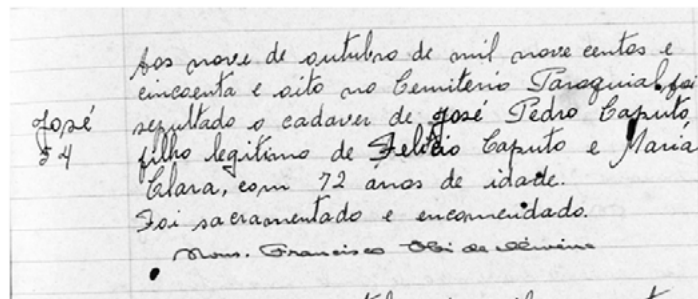 Aos nove de outubro de mil nove centos e
cincoenta e oito no Cemiterio Paroquial, foi
José sepultado o cadaver de José Pedro Caputo,
54 filho legitimo de Felicio Caputo e Maria
Clara, com 72 anos de idade.
Foi sacramentado e encomendado.
Mons. Francisco